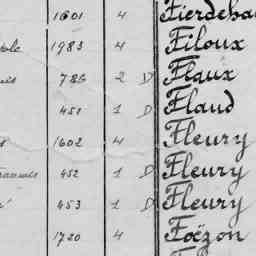 1601 4 Fierdeha
1983 4 Filoux
786 2 D Flaux
451 1 D Flaud
1602 4 Fleury
452 1 D Fleury
453 1 D Fleury
1720 4 Foëzon